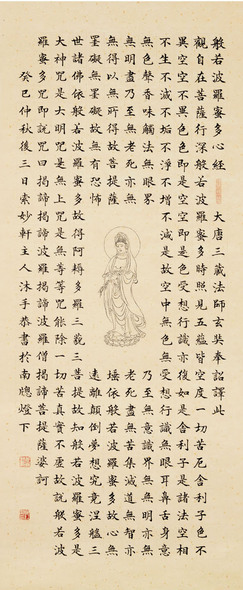 般若波羅蜜多心經　大唐三藏法師玄奘奉詔譯此
觀自在菩薩行深般若波羅蜜多時照見五蘊皆空度一切苦厄舍利子色不
異空空不異色色即是空空即是色受想行識亦復如是舍利子是諸法空相
不生不滅不垢不淨不增不減是故空中無色無受想行識無眼耳鼻舌身意
無色聲香味觸法無眼界　乃至無意識界無無明亦無
無明盡乃至無老死亦無　老死盡無苦集滅道無智亦
無得以無所得故菩提薩　埵依般若波羅蜜多故心無
罣礙無罣礙故無有恐怖　遠離顛倒夢想究竟涅槃三
世諸佛依般若波羅蜜多故得阿耨多羅三藐三菩提故知般若波羅蜜多是
大神咒是大明咒是無上咒是無等等咒能除一切苦真實不虛故說般若波
羅蜜多咒即說咒曰揭諦揭諦波羅揭諦波羅僧揭諦菩提薩婆訶
癸巳仲秋後三日索妙軒主人沐手恭書於南牕燈下